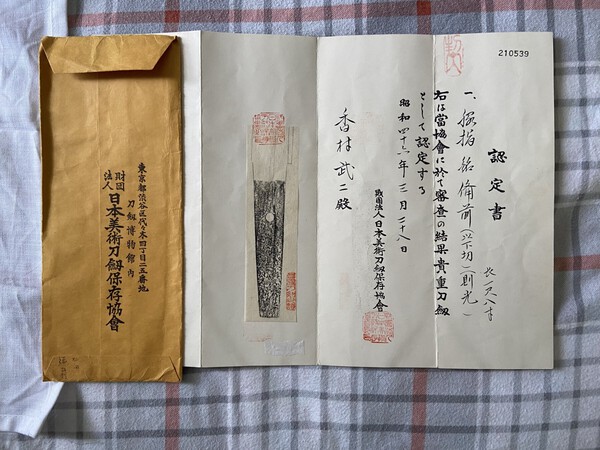 210539
認定書
一、脇指 銘 備前(以下切)則光
長一尺八寸
右は當協會に於て審査の結果貴重刀劔
として認定する
昭和四十三年三月二十八日
財団法人日本美術刀劔保存協會
香村武二殿
東京都渋谷区代々木四丁目二五番地
刀劔博物館内
財団法人
日本美術刀劔保存協會